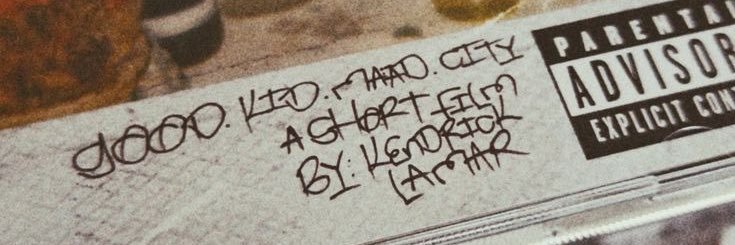 good. kid. maad. city
a short film
by: kendrick
lamar
PARENTAL
ADVISOR
EXPLICIT CON